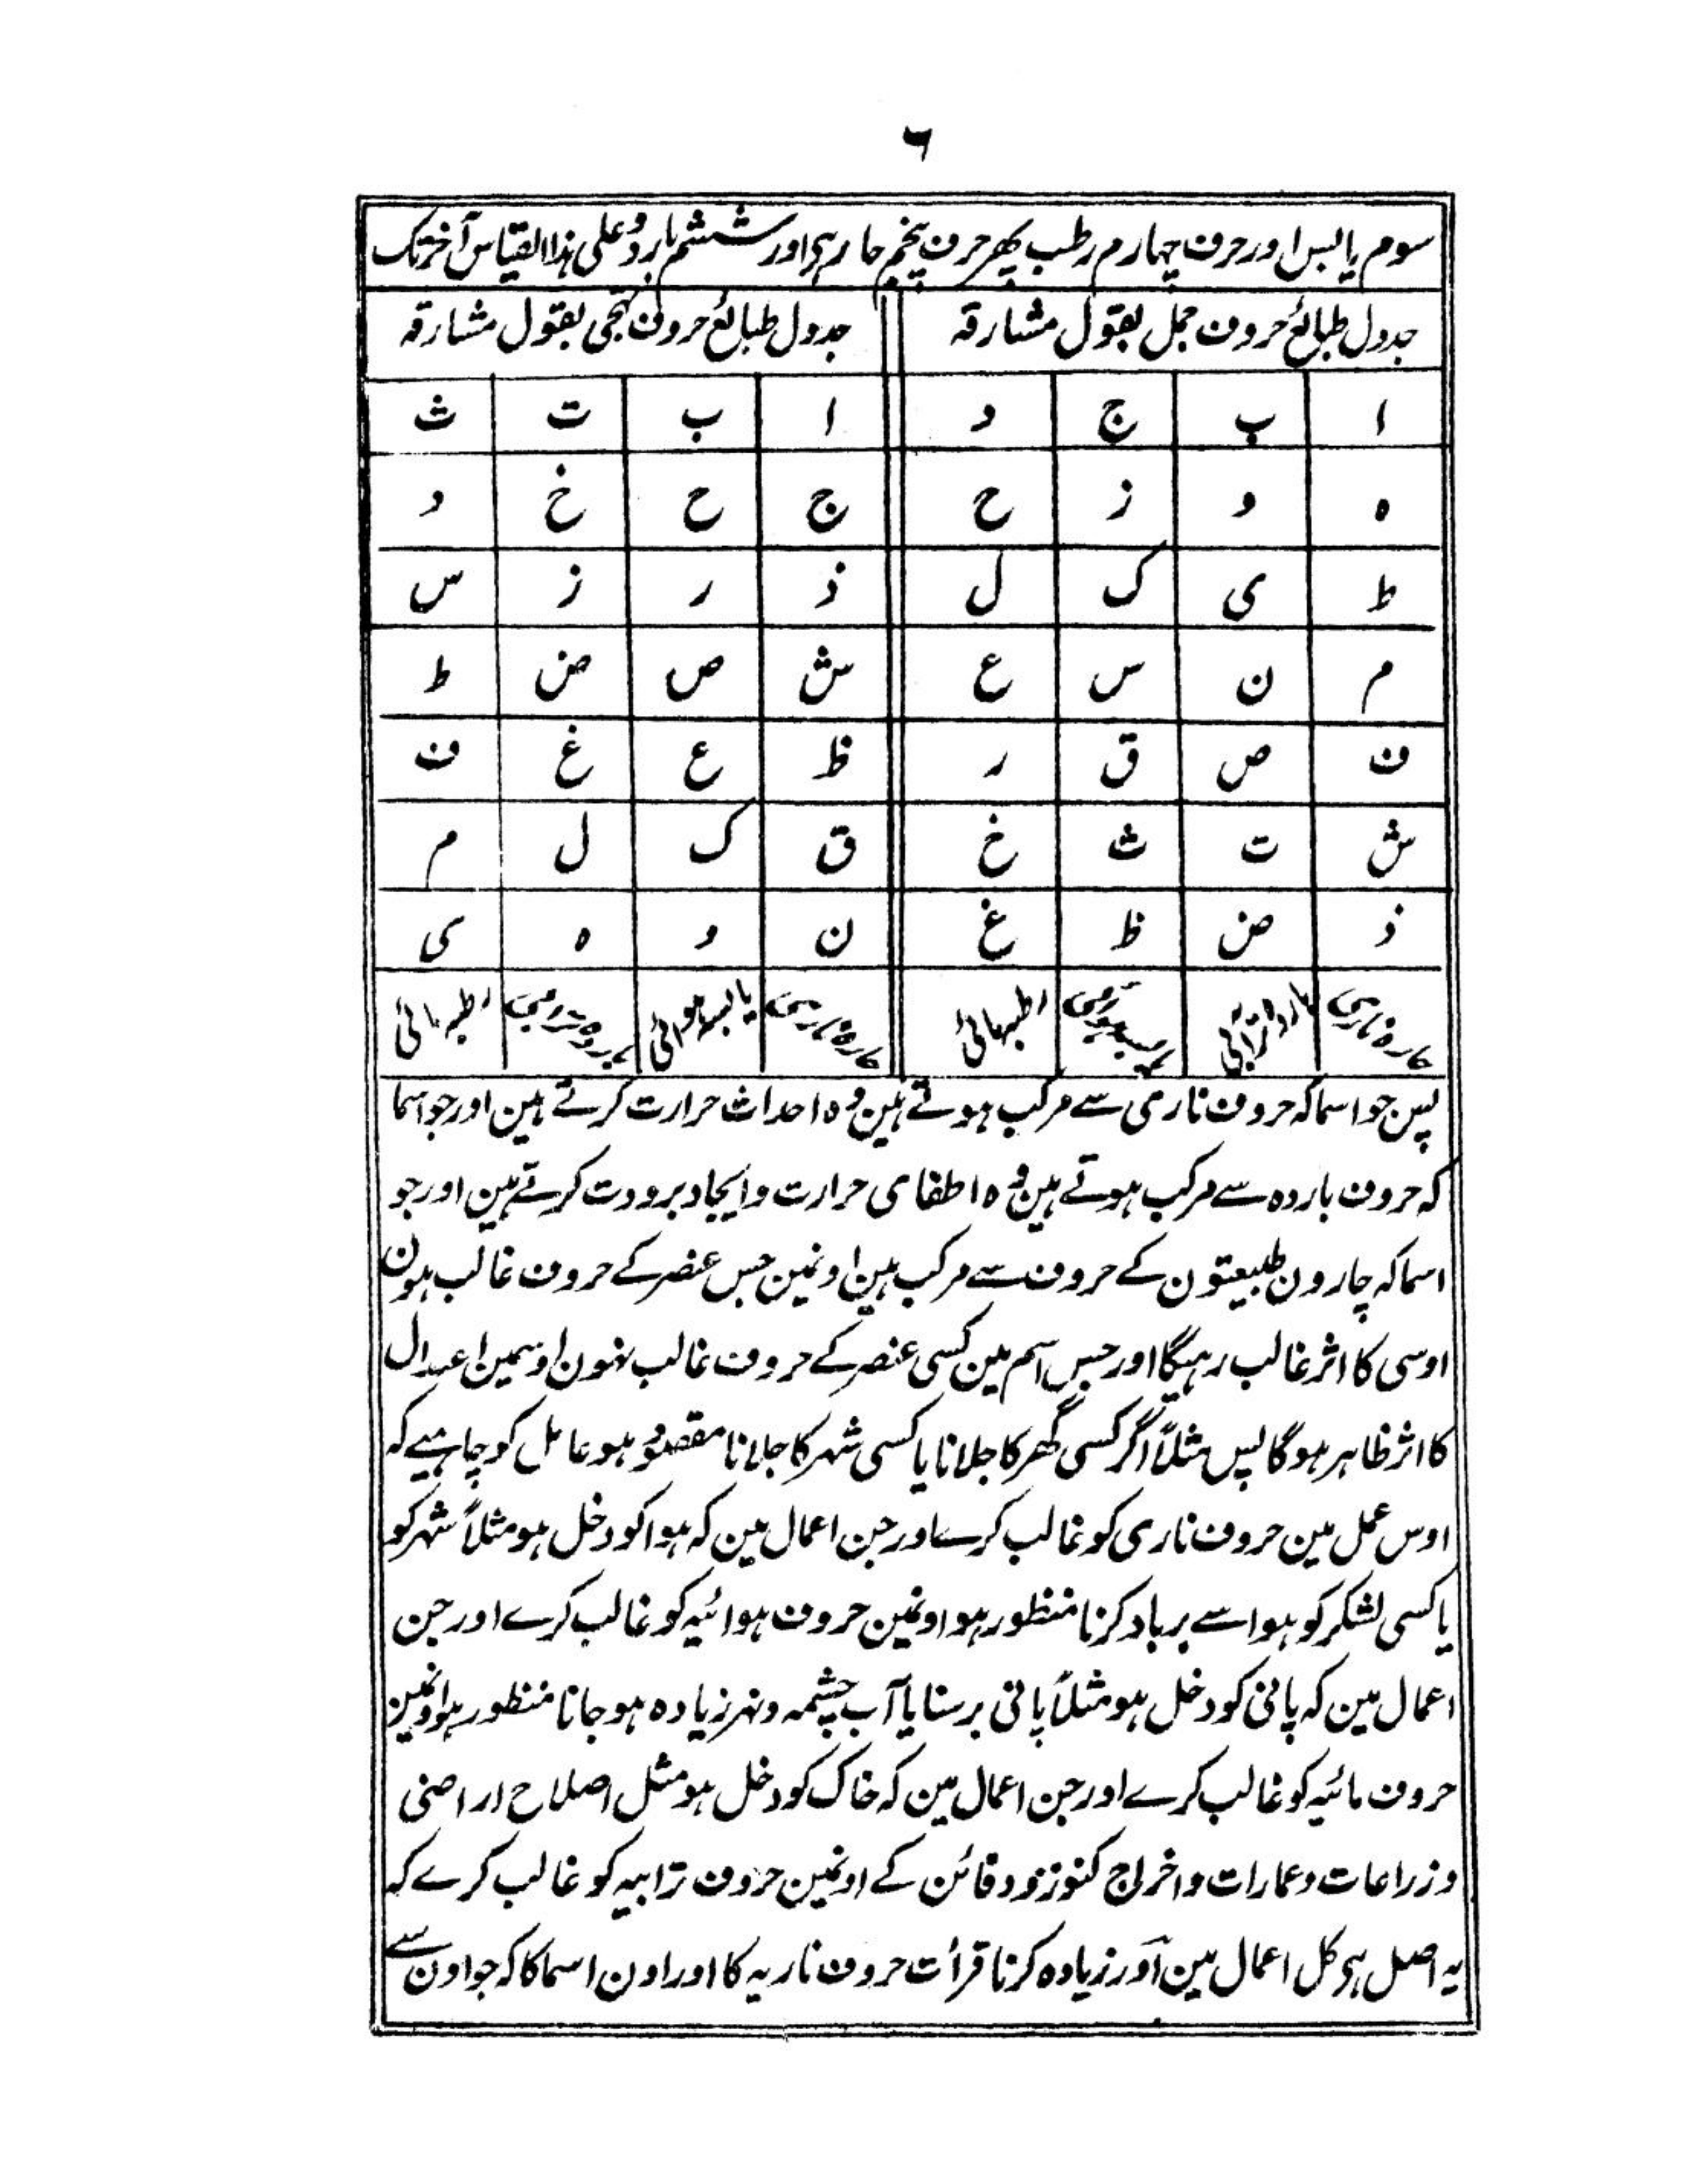 ٦
سوم یابس اور حرف چہارم رطب پھر حرف پنجم حار ہی اور ششم بارد و علی ہذا القیاس آخرتک
جدول طبائع حروف جمل بقول مشارقہ
جدول طبائع حروف تہجی بقول مشارقہ
ا ب ج د ا ب ت ث
ہ و ز ح ج ح خ د
ط ی ک ل ذ ر ز س
م ن س ع ش ص ض ط
ف ص ق ر ظ ع غ ف
ش ت ث خ ق ک ل م
ذ ض ظ غ ن و ہ ی
حارہ ناری
پس جو اسما کہ حروف ناری سے مرکب ہوتے ہین وہ احداث حرارت کرتے ہین اور جو اسما
کہ حروف باردہ سے مرکب ہوتے ہین وہ اطفای حرارت و ایجاد برودت کرتے ہین اور جو
اسما کہ چارون طبیعتون کے حروف سے مرکب ہین اونمین جس عنصر کے حروف غالب ہون
اوسی کا اثر غالب رہیگا اور جس اسم مین کسی عنصر کے حروف غالب نہون اوسمین اعتدال
کا اثر ظاہر ہوگا پس مثلاً اگر کسی گھر کا جلانا یا کسی شہر کا جلانا مقصود ہو عامل کو چاہیے کہ
اوس عمل مین حروف ناری کو غالب کرے اور جن اعمال مین کہ ہوا کو دخل ہو مثلاً شہر کو
یا کسی لشکر کو ہوا سے برباد کرنا منظور ہو اونمین حروف ہوائیہ کو غالب کرے اور جن
اعمال مین کہ پانی کو دخل ہو مثلاً پانی برسنا یا آب چشمہ و نہر زیادہ ہو جانا منظور ہو اونمین
حروف مائیہ کو غالب کرے اور جن اعمال مین کہ خاک کو دخل ہو مثل اصلاح اراضی
و زراعات و عمارات و اخراج کنوز و دفائن کے اونمین حروف ترابیہ کو غالب کرے کہ
یہ اصل ہی کل اعمال مین اور زیادہ کرنا قرأت حروف ناریہ کا اور اون اسما کا کہ جو اون سے